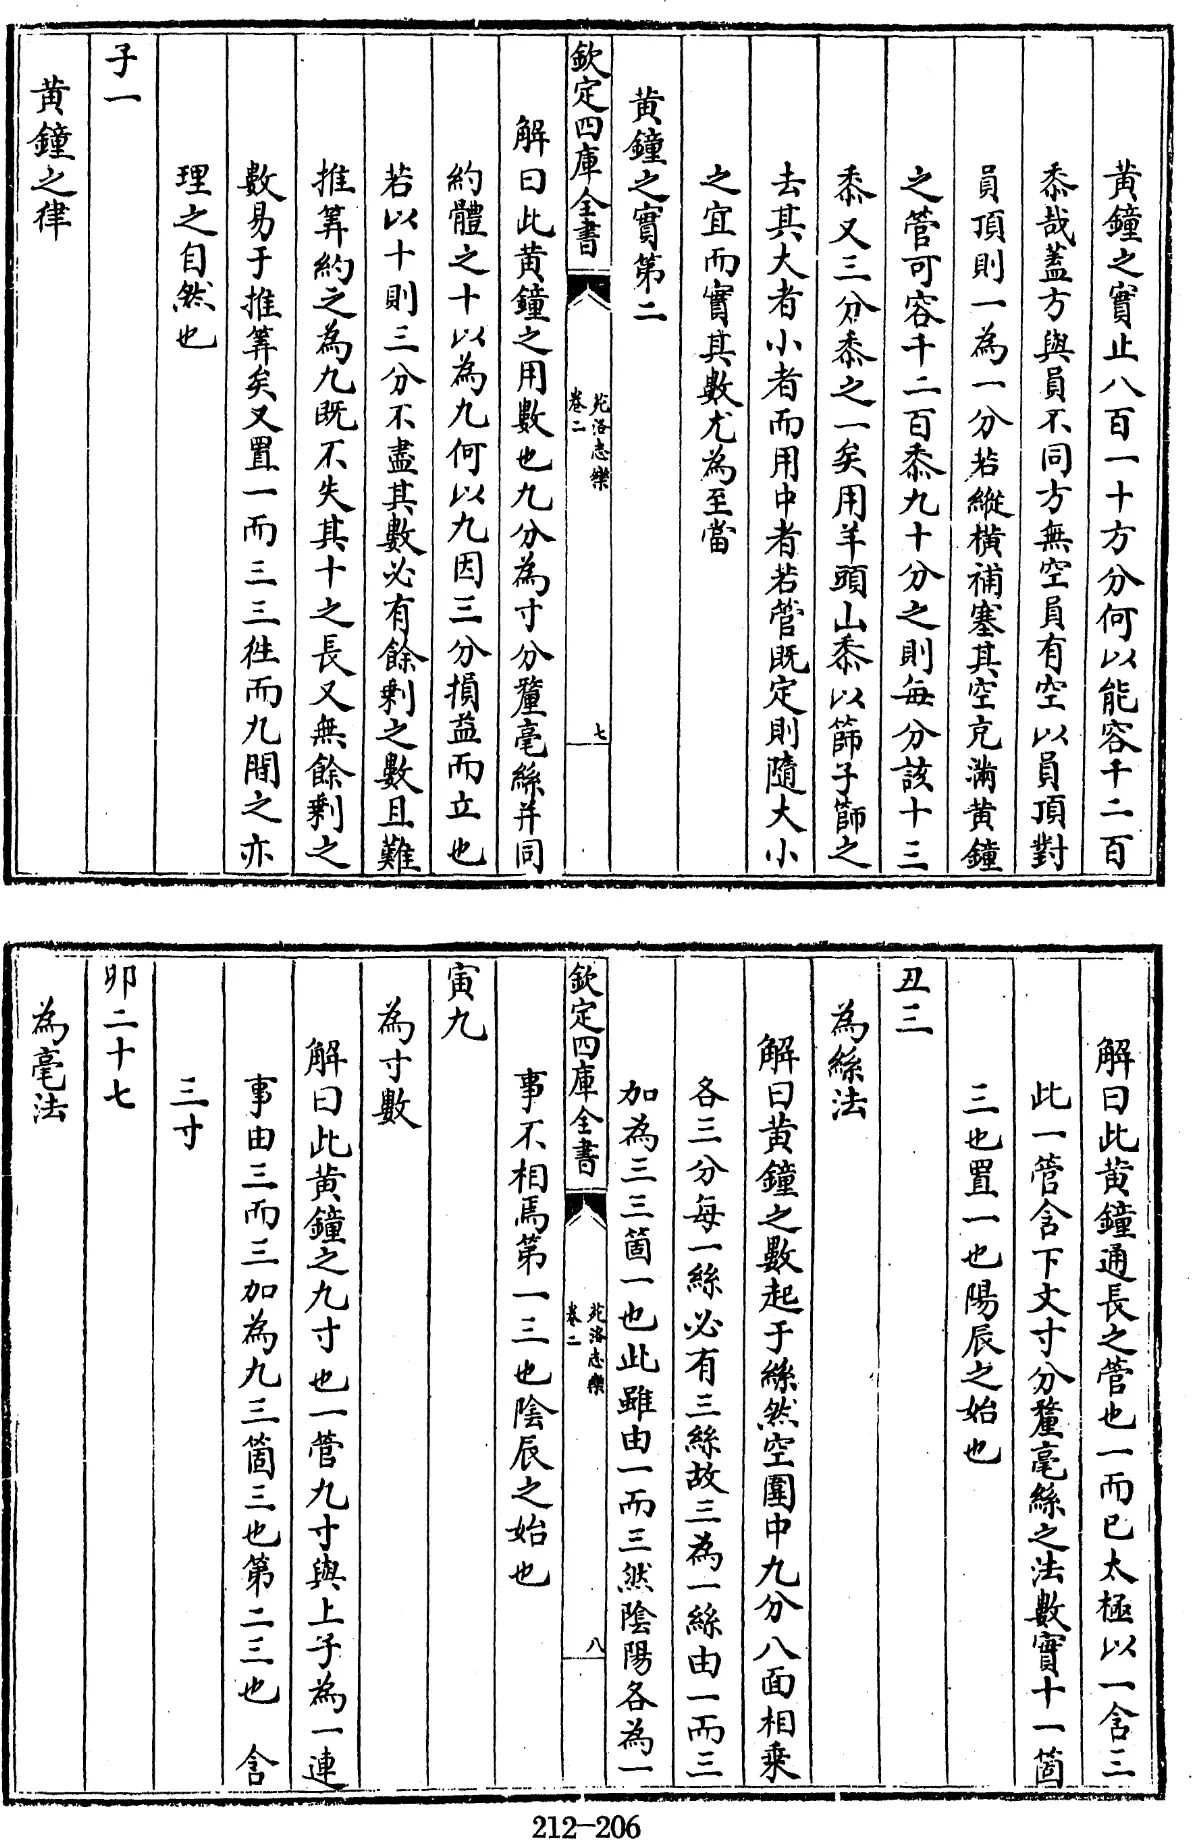 黄鐘之實止八百一十方分何以能容千二百
黍哉蓋方與員不同方無空員有空以員頂對
員頂則一為一分若縱橫補塞其空充滿黄鐘
之管可容千二百黍九十分之則每分該十三
黍又三分黍之一矣用羊頭山黍以篩子篩之
去其大者小者而用中者若管既定則隨大小
之宜而實其數尤為至當
黄鐘之實第二
欽定四庫全書
苑洛志樂
卷二
七
解曰此黄鐘之用數也九分為寸分釐毫絲并同
約體之十以為九何以九因三分損益而立也
若以十則三分不盡其數必有餘剩之數且難
推筭約之為九既不失其十之長又無餘剩之
數易于推筭矣又置一而三三徃而九閱之亦
理之自然也
子一
黄鐘之律
解曰此黄鐘通長之管也一而已太極以一含三
此一管含下文寸分釐毫絲之法數實十一箇
三也置一也陽辰之始也
丑三
為絲法
解曰黄鐘之數起于絲然空圍中九分八面相乗
各三分每一絲必有三絲故三為一絲由一而三
加為三三箇一也此雖由一而三然陰陽各為一
欽定四庫全書
苑洛志樂
卷二
八
事不相焉第一三也陰辰之始也
寅九
為寸數
解曰此黄鐘之九寸也一管九寸與上子為一連
事由三而三加為九三箇三也第二三也 含
三寸
卯二十七
為毫法
212-206